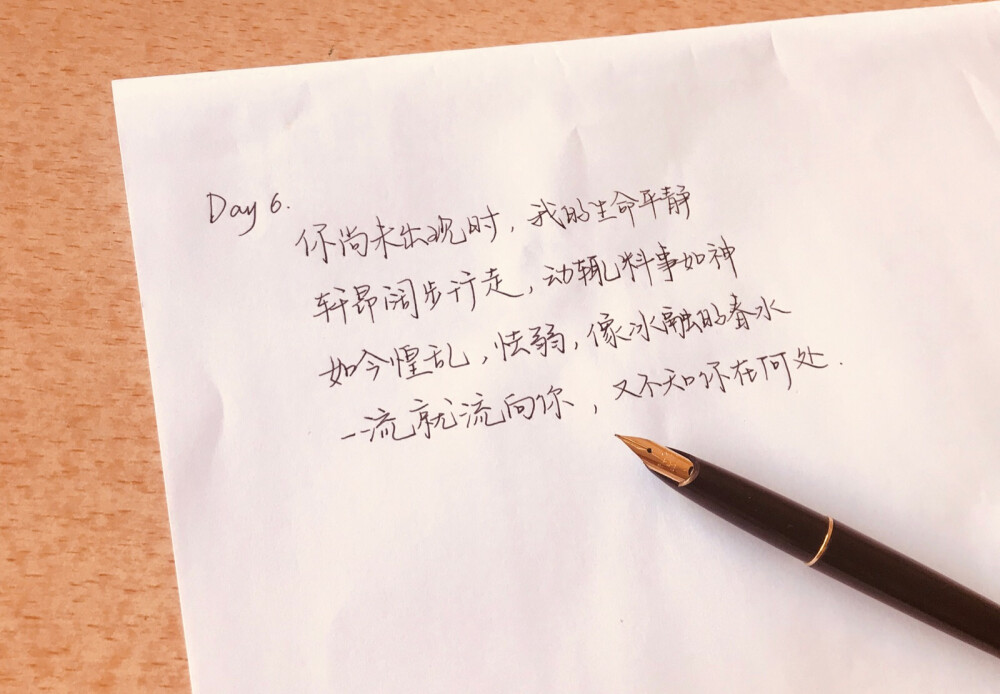 Day 6.
你尚未出现时，我的生命平静
轩昂阔步行走，动辄料事如神
如今惶乱，怯弱，像冰融的春水
一流就流向你，又不知你在何处.